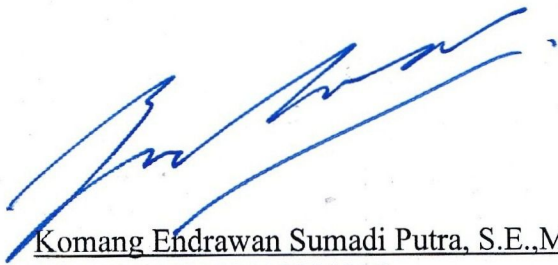 Komang Endrawan Sumadi Putra, S.E.,M